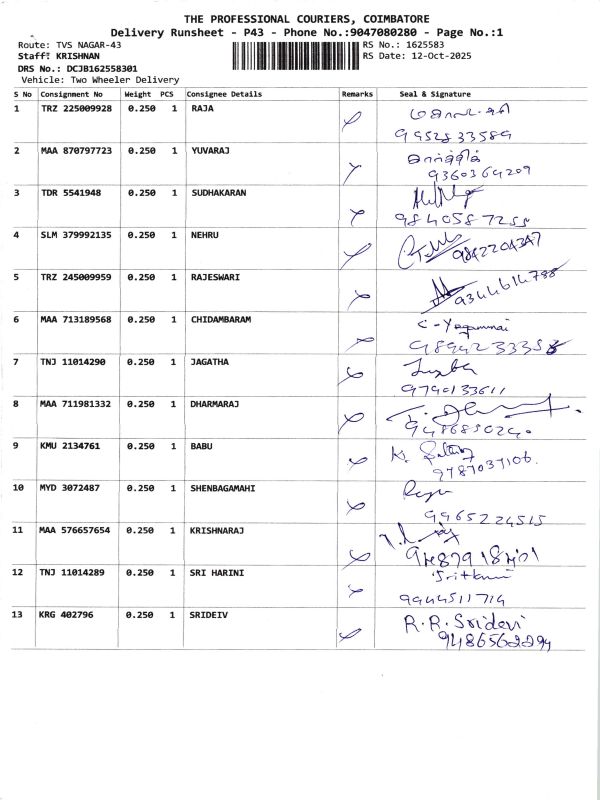 THE PROFESSIONAL COURIERS, COIMBATORE
Delivery Runsheet - P43 - Phone No.:9047080280 - Page No.:1
Route: TVS NAGAR-43 RS No.: 1625583
Staff: KRISHNAN RS Date: 12-Oct-2025
DRS No.: DCJB162558301
Vehicle: Two Wheeler Delivery
S No Consignment No Weight PCS Consignee Details Remarks Seal & Signature
1 TRZ 225009928 0.250 1 RAJA
9952833589
2 MAA 870797723 0.250 1 YUVARAJ
9360369209
3 TDR 5541948 0.250 1 SUDHAKARAN
9840587255
4 SLM 379992135 0.250 1 NEHRU
9842204347
5 TRZ 245009959 0.250 1 RAJESWARI
9344614788
6 MAA 713189568 0.250 1 CHIDAMBARAM
9894233358
7 TNJ 11014290 0.250 1 JAGATHA
9790133611
8 MAA 711981332 0.250 1 DHARMARAJ
9 KMU 2134761 0.250 1 BABU
9787037106.
10 MYD 3072487 0.250 1 SHENBAGAMAHI
9965224515
11 MAA 576657654 0.250 1 KRISHNARAJ
12 TNJ 11014289 0.250 1 SRI HARINI
9944511714
13 KRG 402796 0.250 1 SRIDEIV R.R.Sridevi
9486562294